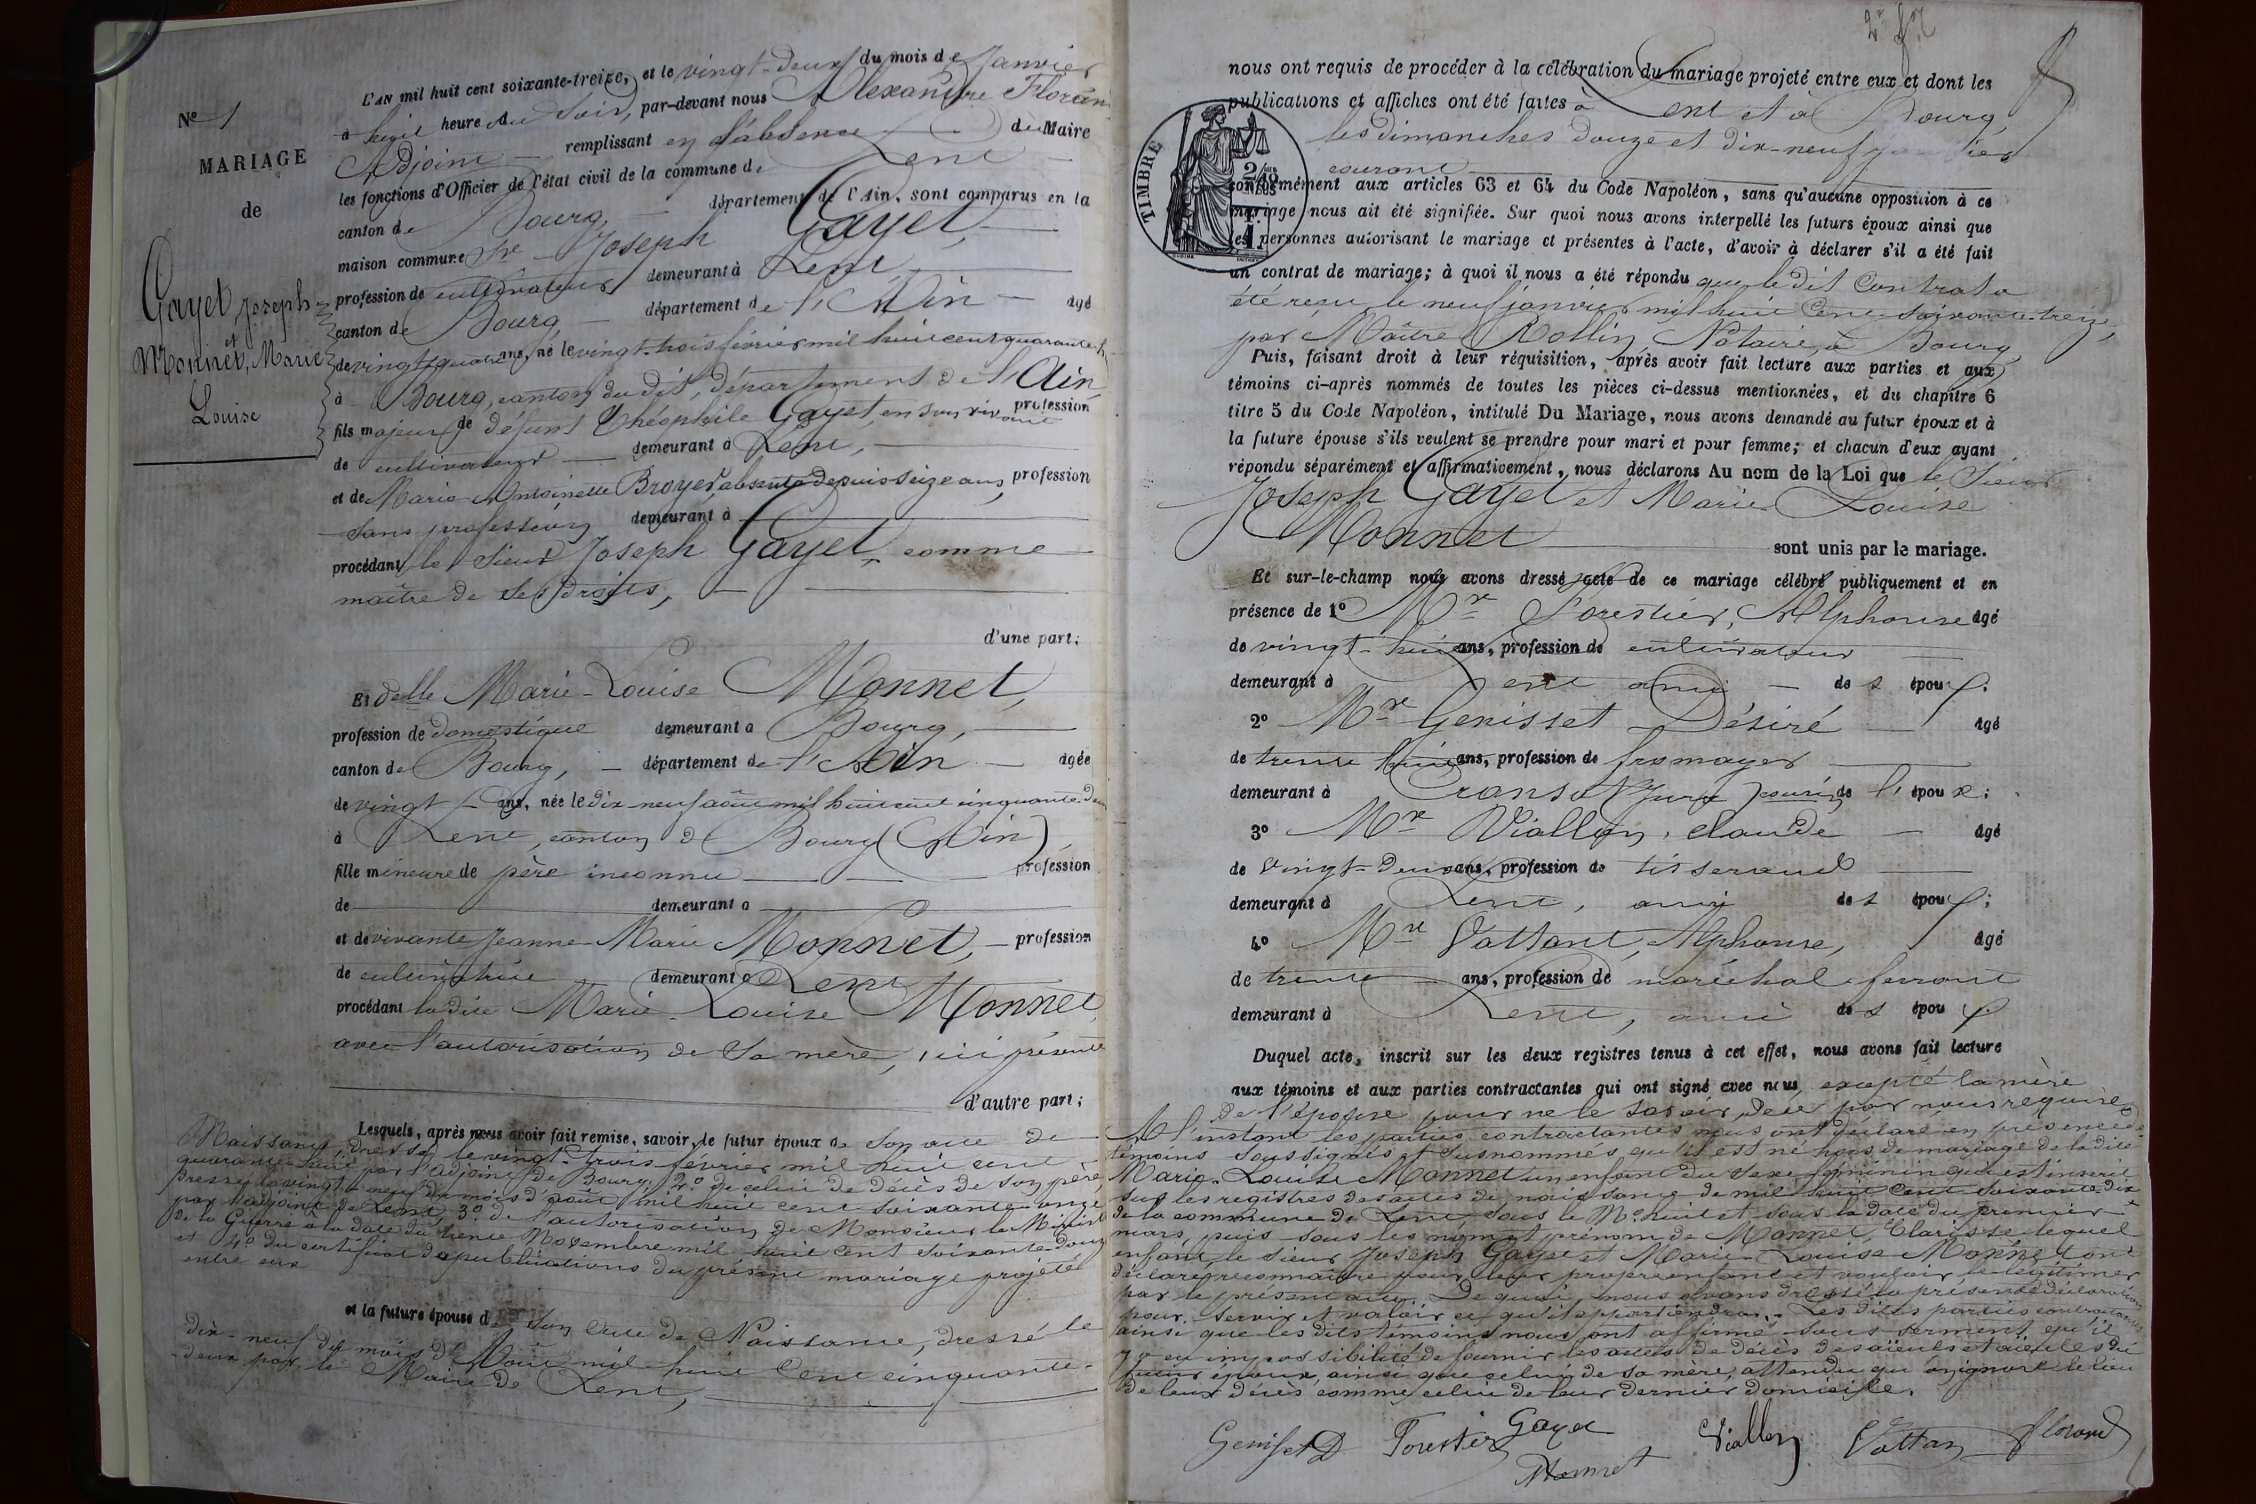 L'AN mil huit cent soixante-treize, et le vingt-deux du mois de Janvier
N° 1
à huit heure du soir, par-devant nous Alexandre Floran
MARIAGE
Adjoint remplissant en l'absence du Maire
les fonctions d'Officier de l'état civil de la commune de Lent
de
canton de Bourg, département de l'Ain, sont comparus en la
maison commune Sr Joseph Gayet,
profession de cultivateur demeurant à Lent,
Gayet, Joseph
canton de Bourg, département de l'Ain âgé
et
de vingt-quatre ans, né le vingt-trois février mil huit cent quarante-h
Monnet, Marie
à Bourg, canton du dit, département de l'Ain,
Louise
fils majeur de défunt Théophile Gayet, en son vivant profession
de cultivateur demeurant à Lent,
et de Marie Antoinette Broyer, absente depuis seize ans, profession
sans profession demeurant à
procédant le sieur Joseph Gayet, comme
maître de ses droits,
d'une part;
Et delle Marie-Louise Monnet,
profession de domestique demeurant à Bourg,
canton de Bourg, département de l'Ain âgée
de vingt ans, née le dix neuf août mil huit cent cinquante-deux
à Lent, canton de Bourg (Ain)
fille mineure de père inconnu profession
de demeurant à
et de vivante Jeanne-Marie Monnet, profession
de cultivatrice demeurant à Lent
procédant la dite Marie-Louise Monnet,
avec l'autorisation de sa mère, ici présente
d'autre part;
Lesquels, après nous avoir fait remise, savoir, le futur époux de Son acte de
Naissance, dressé le vingt-trois février mil huit cent
quarante-huit par l'adjoint de Bourg, 2° de celui de décès de son père,
dressé le vingt-neuf du mois d'août mil huit cent soixante-onze
par l'adjoint de Lent, 3° de l'autorisation de Monsieur le Ministre
de la Guerre à la date du trente Novembre mil huit cent soixante-douze
et 4° du certificat de publications du présent mariage projeté
entre eux
et la future épouse de Son acte de Naissance, dressé le
dix-neuf du mois d'Août mil huit cent cinquante-
deux par le Maire de Lent,
nous ont requis de procéder à la célébration du mariage projeté entre eux et dont les
publications et affiches ont été faites à Lent et à Bourg,
les dimanches douze et dix-neuf janvier
courant
TIMBRE
conformément aux articles 63 et 64 du Code Napoléon, sans qu'aucune opposition à ce
mariage nous ait été signifiée. Sur quoi nous avons interpellé les futurs époux ainsi que
les personnes autorisant le mariage et présentes à l'acte, d'avoir à déclarer s'il a été fait
un contrat de mariage; à quoi il nous a été répondu que le dit Contrat a
été reçu le neuf janvier mil huit Cent soixante-treize,
par Maître Rollin, Notaire, à Bourg,
Puis, faisant droit à leur réquisition, après avoir fait lecture aux parties et aux
témoins ci-après nommés de toutes les pièces ci-dessus mentionnées, et du chapitre 6
titre 5 du Code Napoléon, intitulé Du Mariage, nous avons demandé au futur époux et à
la future épouse s'ils veulent se prendre pour mari et pour femme; et chacun d'eux ayant
répondu séparément et affirmativement, nous déclarons Au nom de la Loi que le Sieur
Joseph Gayet et Marie Louise
Monnet sont unis par le mariage.
Et sur-le-champ nous avons dressé acte de ce mariage célébré publiquement et en
présence de 1° Mr Forestier, Alphonse âgé
de vingt-huit ans, profession de cultivateur
demeurant à Lent ami des époux.
2° Mr Genisset Désiré âgé
de trente huit ans, profession de fromager
demeurant à Cransot (Jura) cousin de l'époux;
3° Mr Viallon, Claude âgé
de vingt-deux ans, profession de tisserand
demeurant à Lent, ami des époux;
4° Mr Vattant, Alphonse, âgé
de trente ans, profession de maréchal ferrant
demeurant à Lent, ami des époux
Duquel acte, inscrit sur les deux registres tenus à cet effet, nous avons fait lecture
aux témoins et aux parties contractantes qui ont signé avec nous, excepté la mère
de l'épouse pour ne le savoir, de ce par nous requise
A l'instant les parties contractantes nous ont déclaré en présence des
témoins soussignés et susnommés, qu'il est né hors de mariage de la dite
Marie-Louise Monnet un enfant du sexe féminin qui est inscrit
sur les registres des actes de naissance de mil huit Cent soixante-dix
de la commune de Lent, sous le N° huit et sous la date du premier
mars, puis sous les nom et prénom de Monnet, Clarisse lequel
enfant, le sieur Joseph Gayet et Marie-Louise Monnet ont
déclaré reconnaître pour leur propre enfant et vouloir le légitimer
par le présent acte. De quoi nous avons dressé la présente déclaration
pour servir et valoir ce qu'il appartiendra. Les dites parties contractantes
ainsi que les dits témoins nous ont affirmé sous serment qu'il
y a eu impossibilité de fournir les actes de décès des aïeuls et aïeules du
futur époux, ainsi que celui de sa mère, attendu qu'on ignore le lieu
de leur décès comme celui de leur dernier domicile.
Genisset D Forestier Gayet Viallon Vattan Florand
Monnet